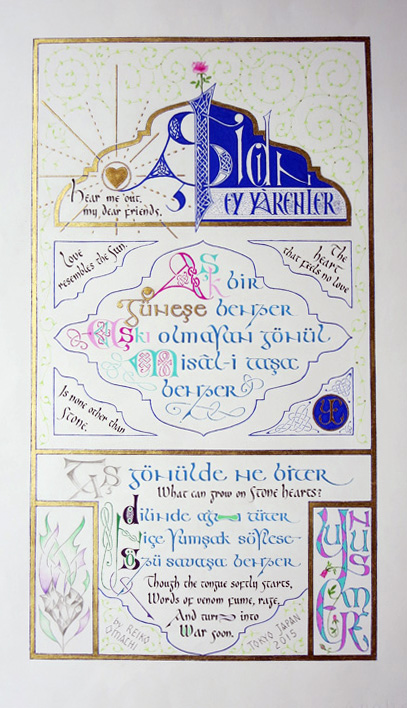 İşidin
EY YÂRENLER
Hear me out,
my dear friends.
Love
resembles the Sun.
The
heart
that feels no love
Aşk bir
güneşe benzer
Aşkı olmayan gönül
Misâl-i taşa
benzer
Is none other than
Stone.
YE
Taş gönülde ne biter
What can grow on Stone hearts?
Dilinde ağu tüter
Niçe yumşak söylese
Sözü savaşa benzer
Though the tongue softly starts,
Words of venom fume, rage,
And turn into
War soon.
by REIKO
OTACHI
TOKYO JAPAN
2015
YUNUS
EMRE